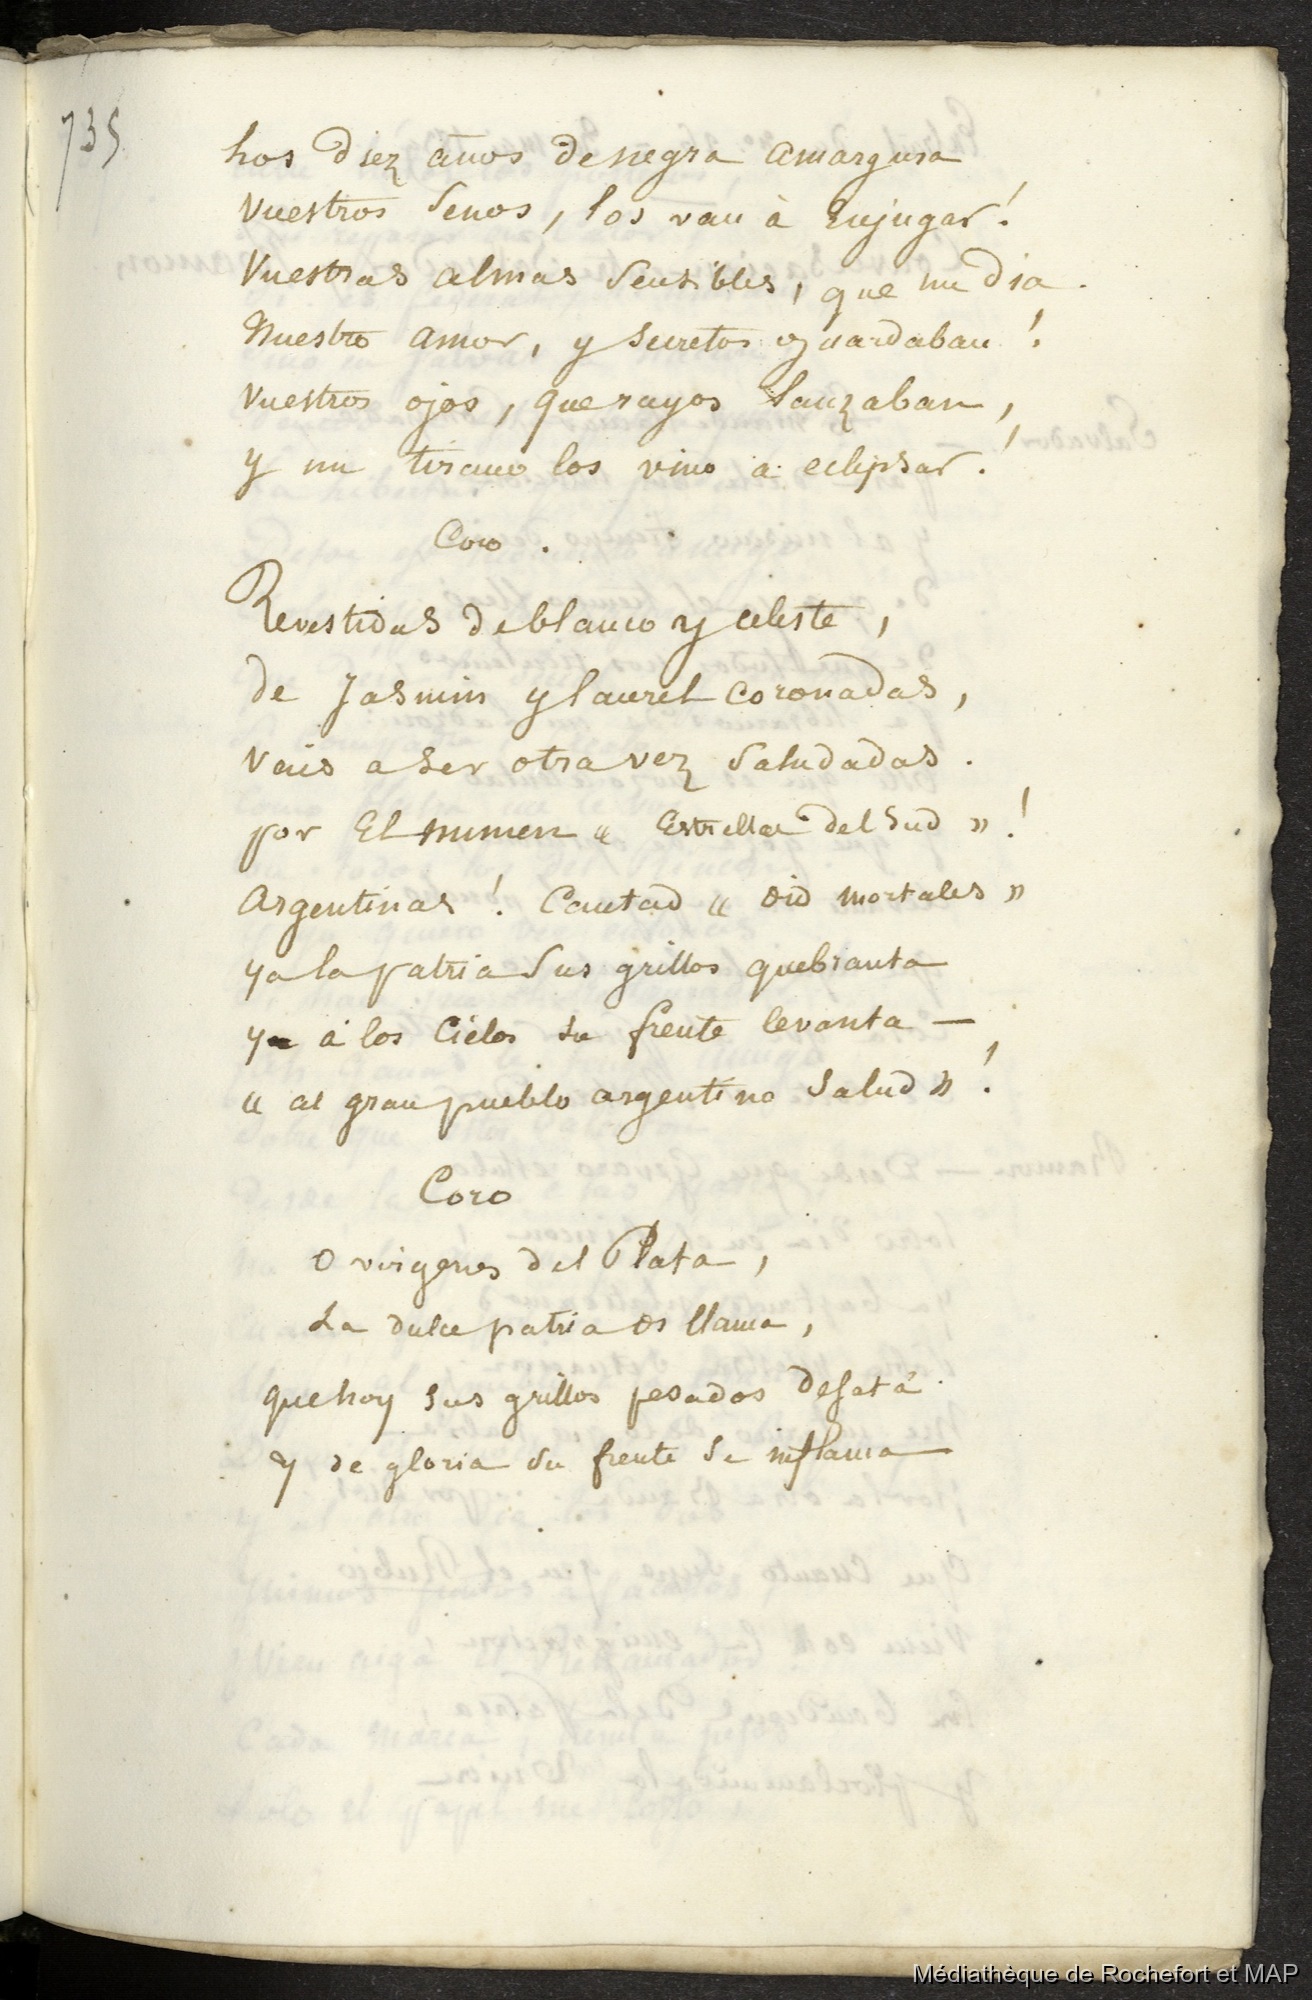 735
Los diez años de negra amargura
Vuestros Senos, los van à Enjugar!
Vuestras almas Sensibles, que un dia.
Nuestro amor, y Secretos guardaban!
Vuestros ojos, que rayos lanzaban,
y un tirano los vino a eclipsar!
Coro.
Revestidas de blanco y celeste,
de Jasmin y laurel coronadas,
Vais a Ser otra vez Saludadas.
por El numen « Estrella del Sud »!
Argentinas! Cantad « Oid mortales »
ya la patria Sus grillos quebranta
ya a los Cielos su frente levanta —
« al gran pueblo argentino Salud »!
Coro
O virgenes del Plata,
La dulce patria os llama,
que hoy Sus grillos pesados desata
y de gloria Su frente Se inflama
Médiathèque de Rochefort et MAP